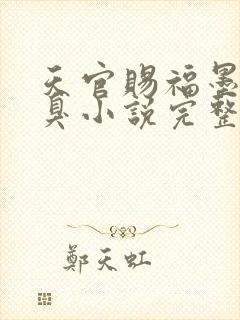 天官賜福墨
臭小說完整
鄭天虹